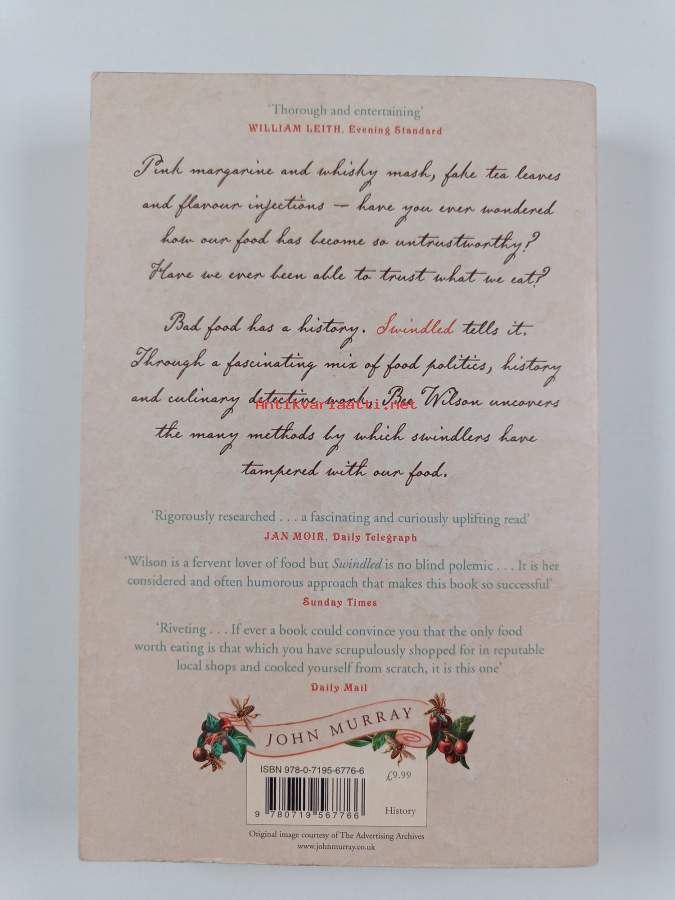 ‘Thorough and entertaining’
WILLIAM LEITH, Evening Standard
Pink margarine and whisky mash, fake tea leaves
and flavour injections – have you ever wondered
how our food has become so untrustworthy?
Have we ever been able to trust what we eat?
Bad food has a history. Swindled tells it.
Through a fascinating mix of food politics, history
and culinary detective work, Bee Wilson uncovers
Antikvariaatti.net
the many methods by which swindlers have
tampered with our food.
‘Rigorously researched . . . a fascinating and curiously uplifting read’
JAN MOIR, Daily Telegraph
‘Wilson is a fervent lover of food but Swindled is no blind polemic . . . It is her
considered and often humorous approach that makes this book so successful’
Sunday Times
‘Riveting . . . If ever a book could convince you that the only food
worth eating is that which you have scrupulously shopped for in reputable
local shops and cooked yourself from scratch, it is this one’
Daily Mail
JOHN MURRAY
ISBN 978-0-7195-6776-6
£9.99
9 780719 567766
History
Original image courtesy of The Advertising Archives
www.johnmurray.co.uk